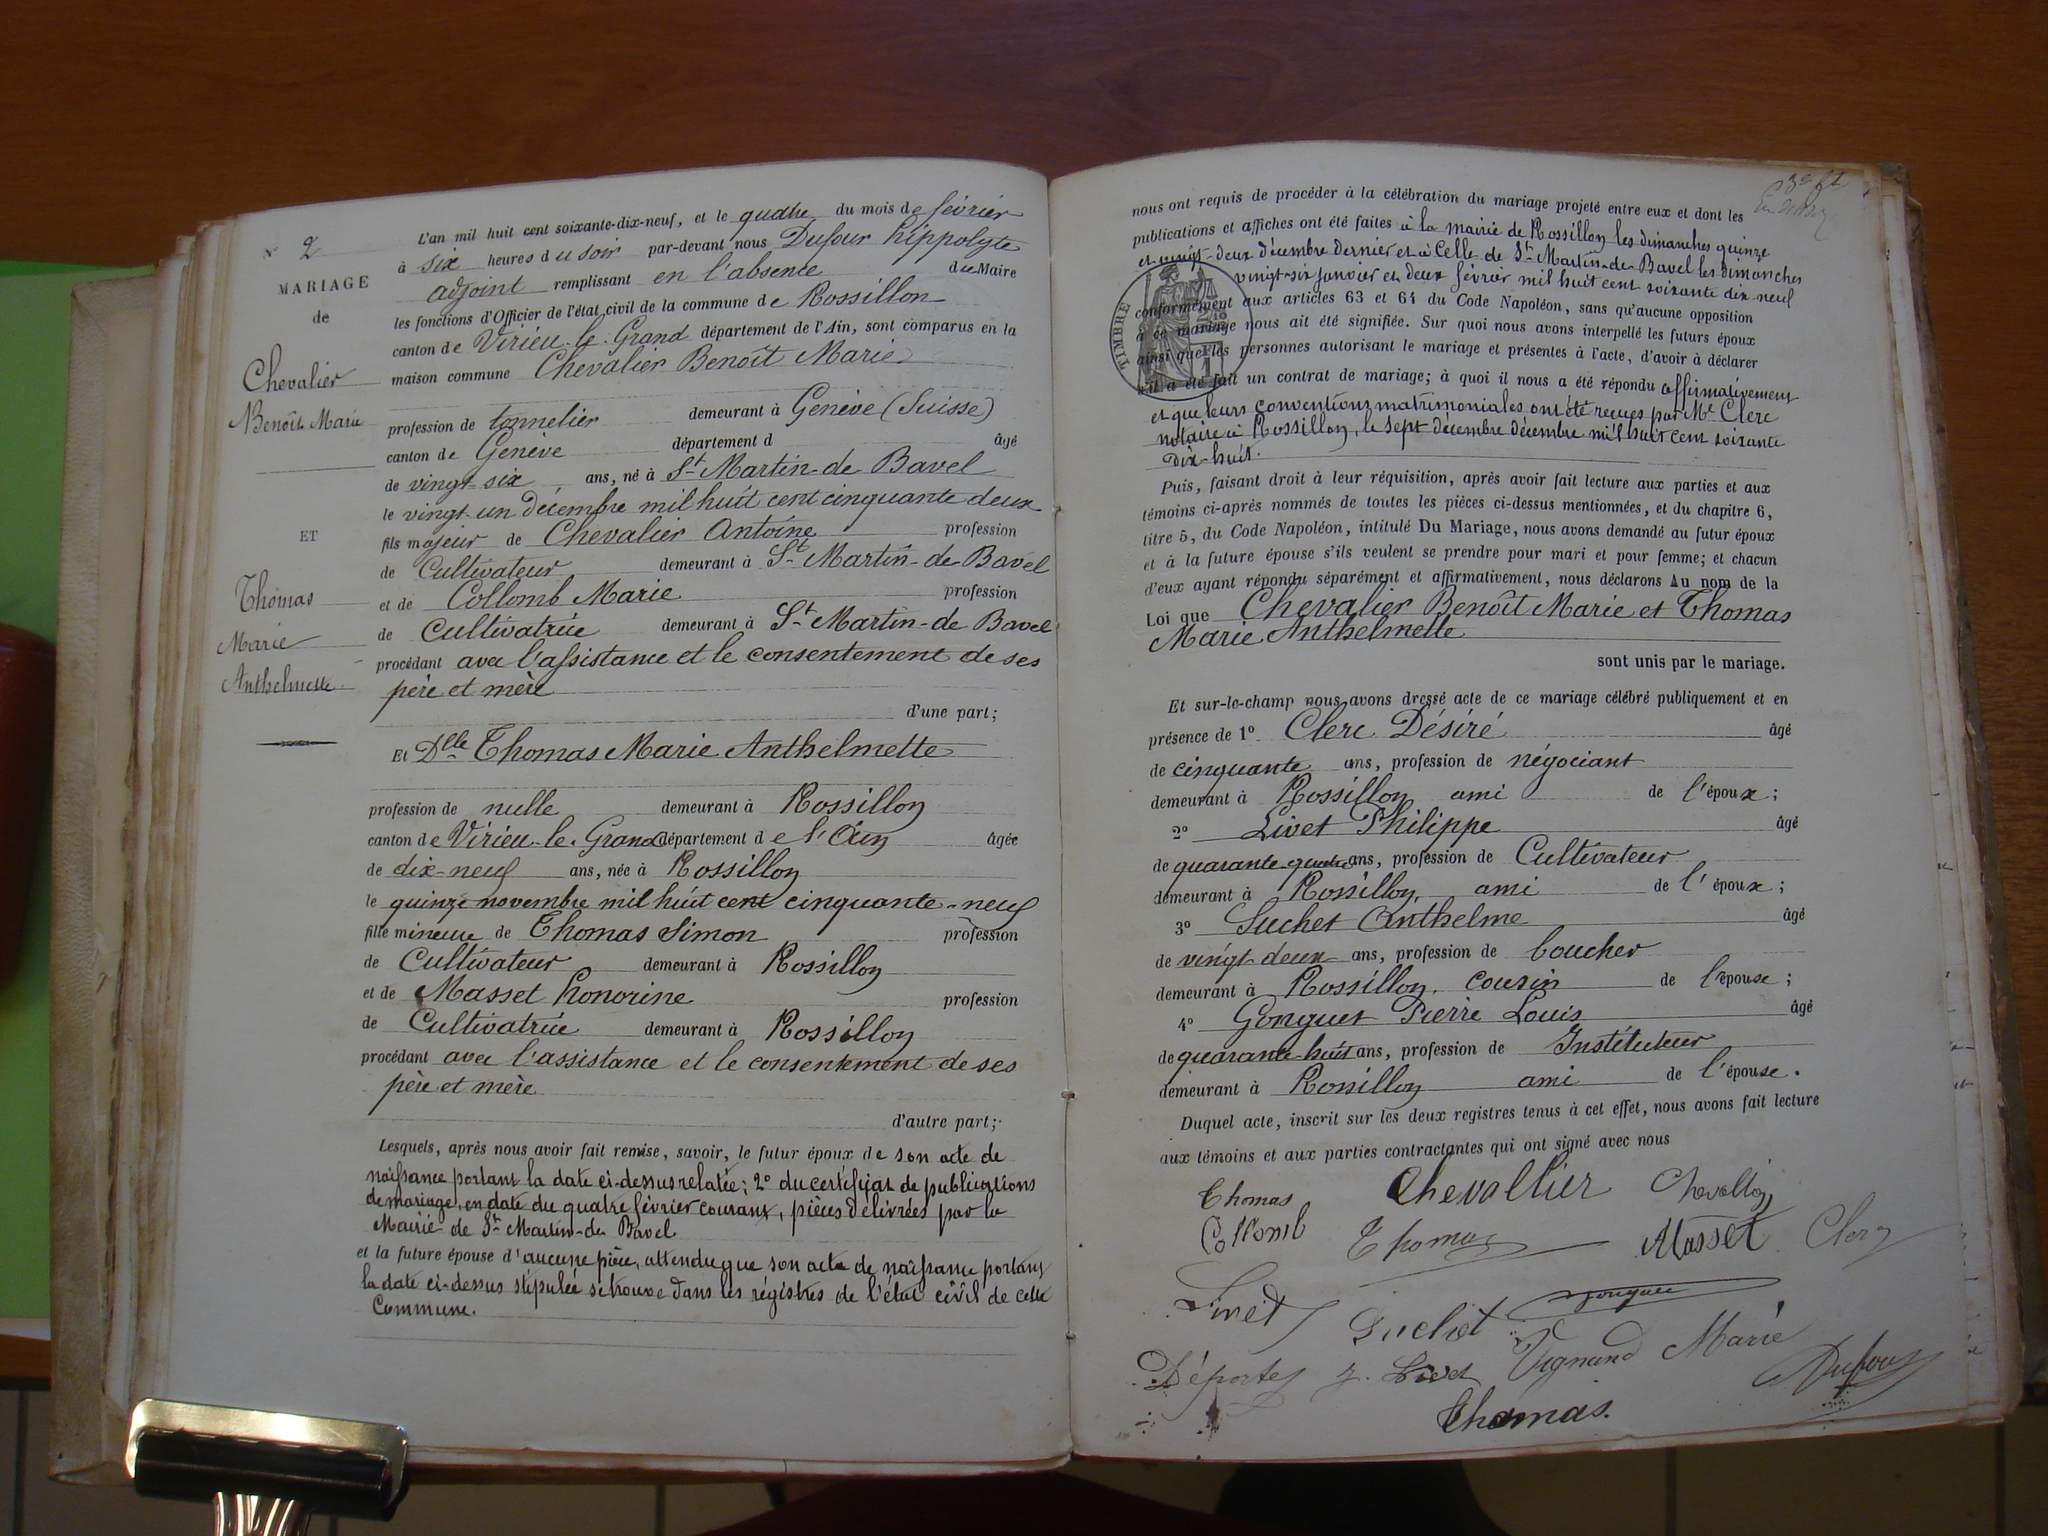 N° 2
MARIAGE
de
Chevalier
Benoît Marie
ET
Thomas
Marie
Anthelmette
L'an mil huit cent soixante-dix-neuf, et le quatre du mois de février
à six heures du soir par-devant nous Dufour hippolyte
adjoint remplissant en l'absence du Maire
les fonctions d'Officier de l'état civil de la commune de Rossillon
canton de Virieu-le-Grand département de l'Ain, sont comparus en la
maison commune Chevalier Benoît Marie
profession de tonnelier demeurant à Genève (Suisse)
canton de Genève département d âgé
de vingt-six ans, né à St Martin-de Bavel
le vingt-un décembre mil huit cent cinquante deux
fils majeur de Chevalier Antoine profession
de Cultivateur demeurant à St Martin-de-Bavel
et de Collomb Marie profession
de Cultivatrice demeurant à St Martin-de Bavel
procédant avec l'assistance et le consentement de ses
père et mère
d'une part;
Et Dlle Thomas Marie Anthelmette
profession de nulle demeurant à Rossillon
canton de Virieu-le-Grand département de l'Ain âgée
de dix-neuf ans, née à Rossillon
le quinze novembre mil huit cent cinquante-neuf
fille mineure de Thomas Simon profession
de Cultivateur demeurant à Rossillon
et de Masset honorine profession
de Cultivatrice demeurant à Rossillon
procédant avec l'assistance et le consentement de ses
père et mère
d'autre part;
Lesquels, après nous avoir fait remise, savoir, le futur époux de son acte de
naissance portant la date ci-dessus relatée; 2° du certificat de publications
de mariage, en date du quatre février courant, pièces délivrées par la
Mairie de St Martin-de Bavel
et la future épouse d'aucune pièce, attendu que son acte de naissance portant
la date ci-dessus stipulée se trouve dans les régistres de l'état civil de cette
Commune.
nous ont requis de procéder à la célébration du mariage projeté entre eux et dont les
publications et affiches ont été faites à la mairie de Rossillon les dimanches quinze
et vingt-deux décembre dernier et à Celle de St Martin-de-Bavel les dimanches
vingt-six janvier et deux février mil huit cent soixante dix-neuf
TIMBRE
conformément aux articles 63 et 64 du Code Napoléon, sans qu'aucune opposition
à ce mariage nous ait été signifiée. Sur quoi nous avons interpellé les futurs époux
ainsi que les personnes autorisant le mariage et présentes à l'acte, d'avoir à déclarer
s'il a été fait un contrat de mariage; à quoi il nous a été répondu affirmativement
et que leurs conventions matrimoniales ont été reçues par Me Clerc
notaire à Rossillon, le sept décembre décembre mil huit cent soixante
dix-huit.
Puis, faisant droit à leur réquisition, après avoir fait lecture aux parties et aux
témoins ci-après nommés de toutes les pièces ci-dessus mentionnées, et du chapitre 6,
titre 5, du Code Napoléon, intitulé Du Mariage, nous avons demandé au futur époux
et à la future épouse s'ils veulent se prendre pour mari et pour femme; et chacun
d'eux ayant répondu séparément et affirmativement, nous déclarons Au nom de la
Loi que Chevalier Benoît Marie et Thomas
Marie Anthelmette
sont unis par le mariage.
Et sur-le-champ nous avons dressé acte de ce mariage célébré publiquement et en
présence de 1° Clerc Désiré âgé
de cinquante ans, profession de négociant
demeurant à Rossillon ami de l'époux;
2° Livet Philippe âgé
de quarante-quatre ans, profession de Cultivateur
demeurant à Rossillon, ami de l'époux;
3° Suchet Anthelme âgé
de vingt-deux ans, profession de boucher
demeurant à Rossillon, cousin de l'épouse;
4° Gonguet Pierre Louis âgé
de quarante-huit ans, profession de Instituteur
demeurant à Rossillon ami de l'épouse.
Duquel acte, inscrit sur les deux registres tenus à cet effet, nous avons fait lecture
aux témoins et aux parties contractantes qui ont signé avec nous
Thomas Chevallier
Collomb Thomas Masset Clerc
Livet Suchet Gonguet
Déporte J. Livet Vignand Marie Dufour
Thomas.